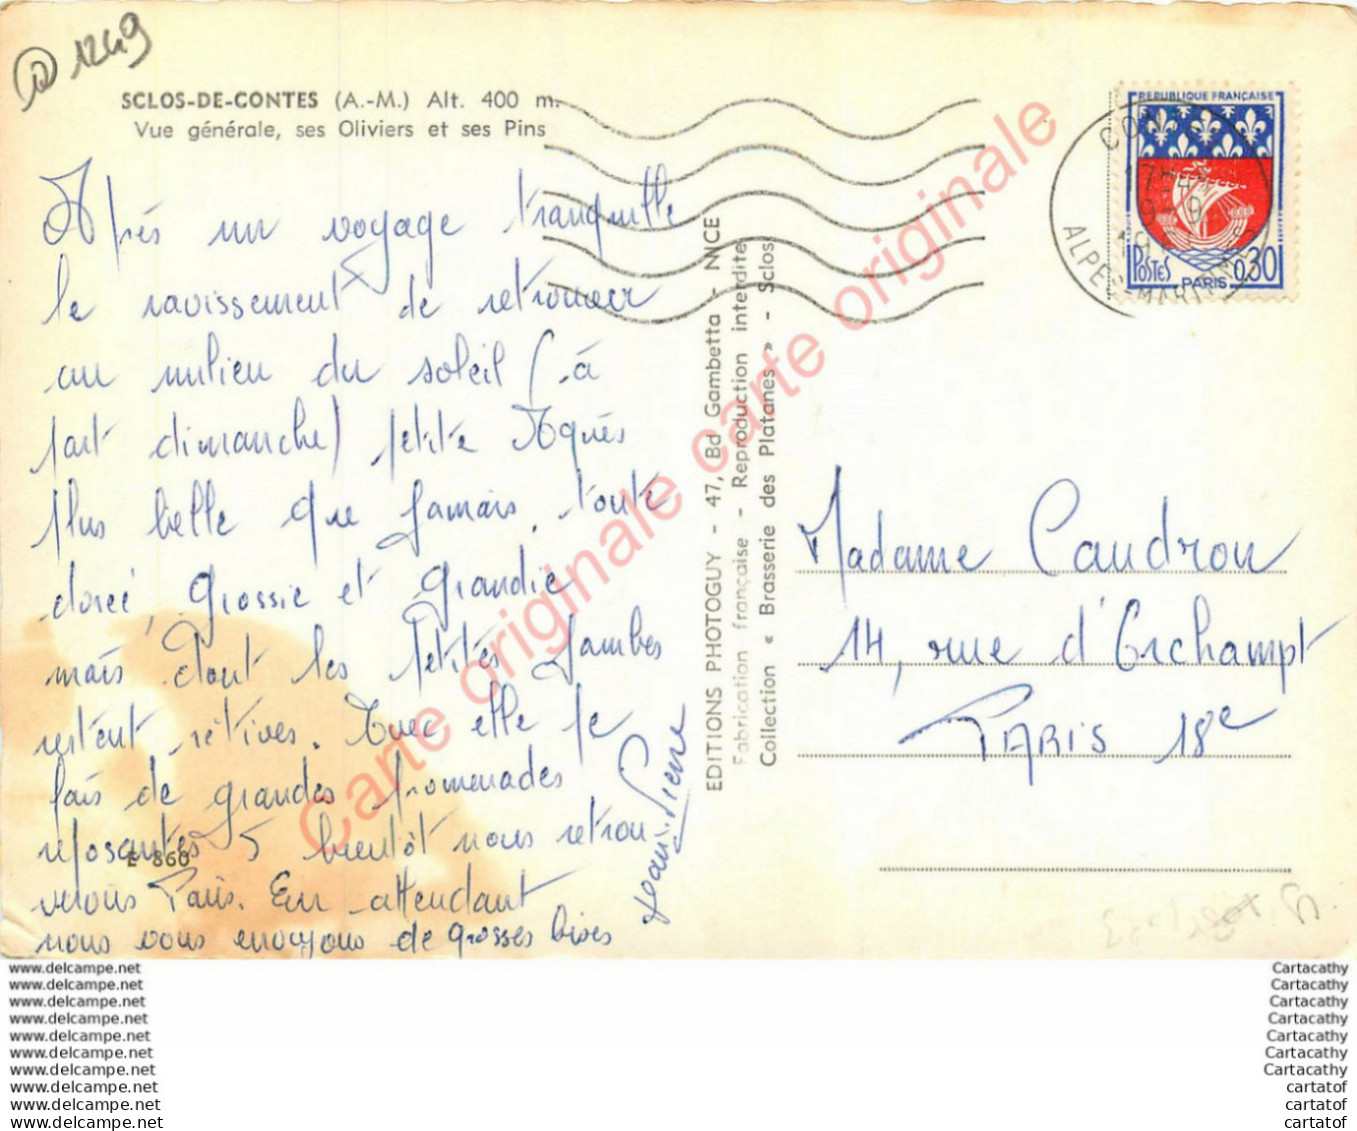 D 1249
SCLOS-DE-CONTES (A.-M.) Alt. 400 m.
Vue générale, ses Oliviers et ses Pins
Après un voyage tranquille
le ravissement de retrouver
au milieu du soleil (à
part dimanche) petite Agnès
plus belle que jamais, toute
dorée, grossie et grandie
mais dont les petites jambes
restent rétives. Avec elle je
fais de grandes promenades
reposantes à bientôt nous retrou
verons Paris. En attendant
nous vous envoyons de grosses bises
Jean-Pierre
E 860
EDITIONS PHOTOGUY - 47, Bd Gambetta - NICE
Fabrication française - Reproduction interdite
Collection « Brasserie des Platanes » - Sclos
REPUBLIQUE FRANÇAISE
POSTES
PARIS
0,30
17H45
ALPES MARITIMES
Madame Caudron
14, rue d'Orchampt
PARIS 18e
Carte originale carte originale
www.delcampe.net
www.delcampe.net
www.delcampe.net
www.delcampe.net
www.delcampe.net
www.delcampe.net
www.delcampe.net
www.delcampe.net
www.delcampe.net
www.delcampe.net
Cartacathy
Cartacathy
Cartacathy
Cartacathy
Cartacathy
Cartacathy
Cartacathy
cartatof
cartatof
cartatof